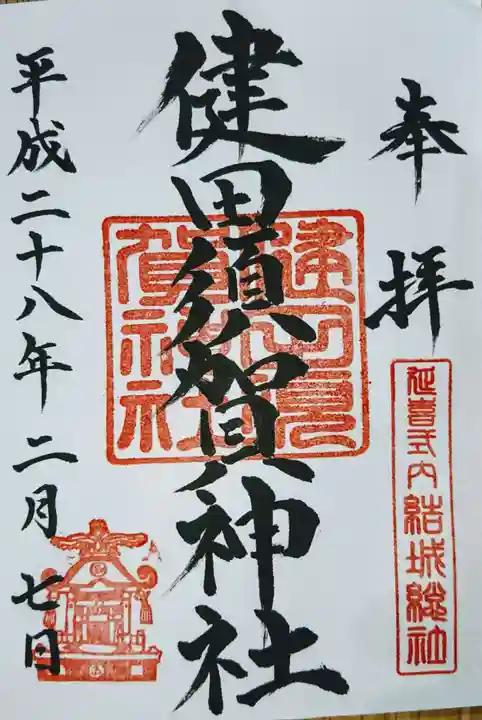 奉拝
延喜式内結城総社
健田須賀神社
平成二十八年二月七日